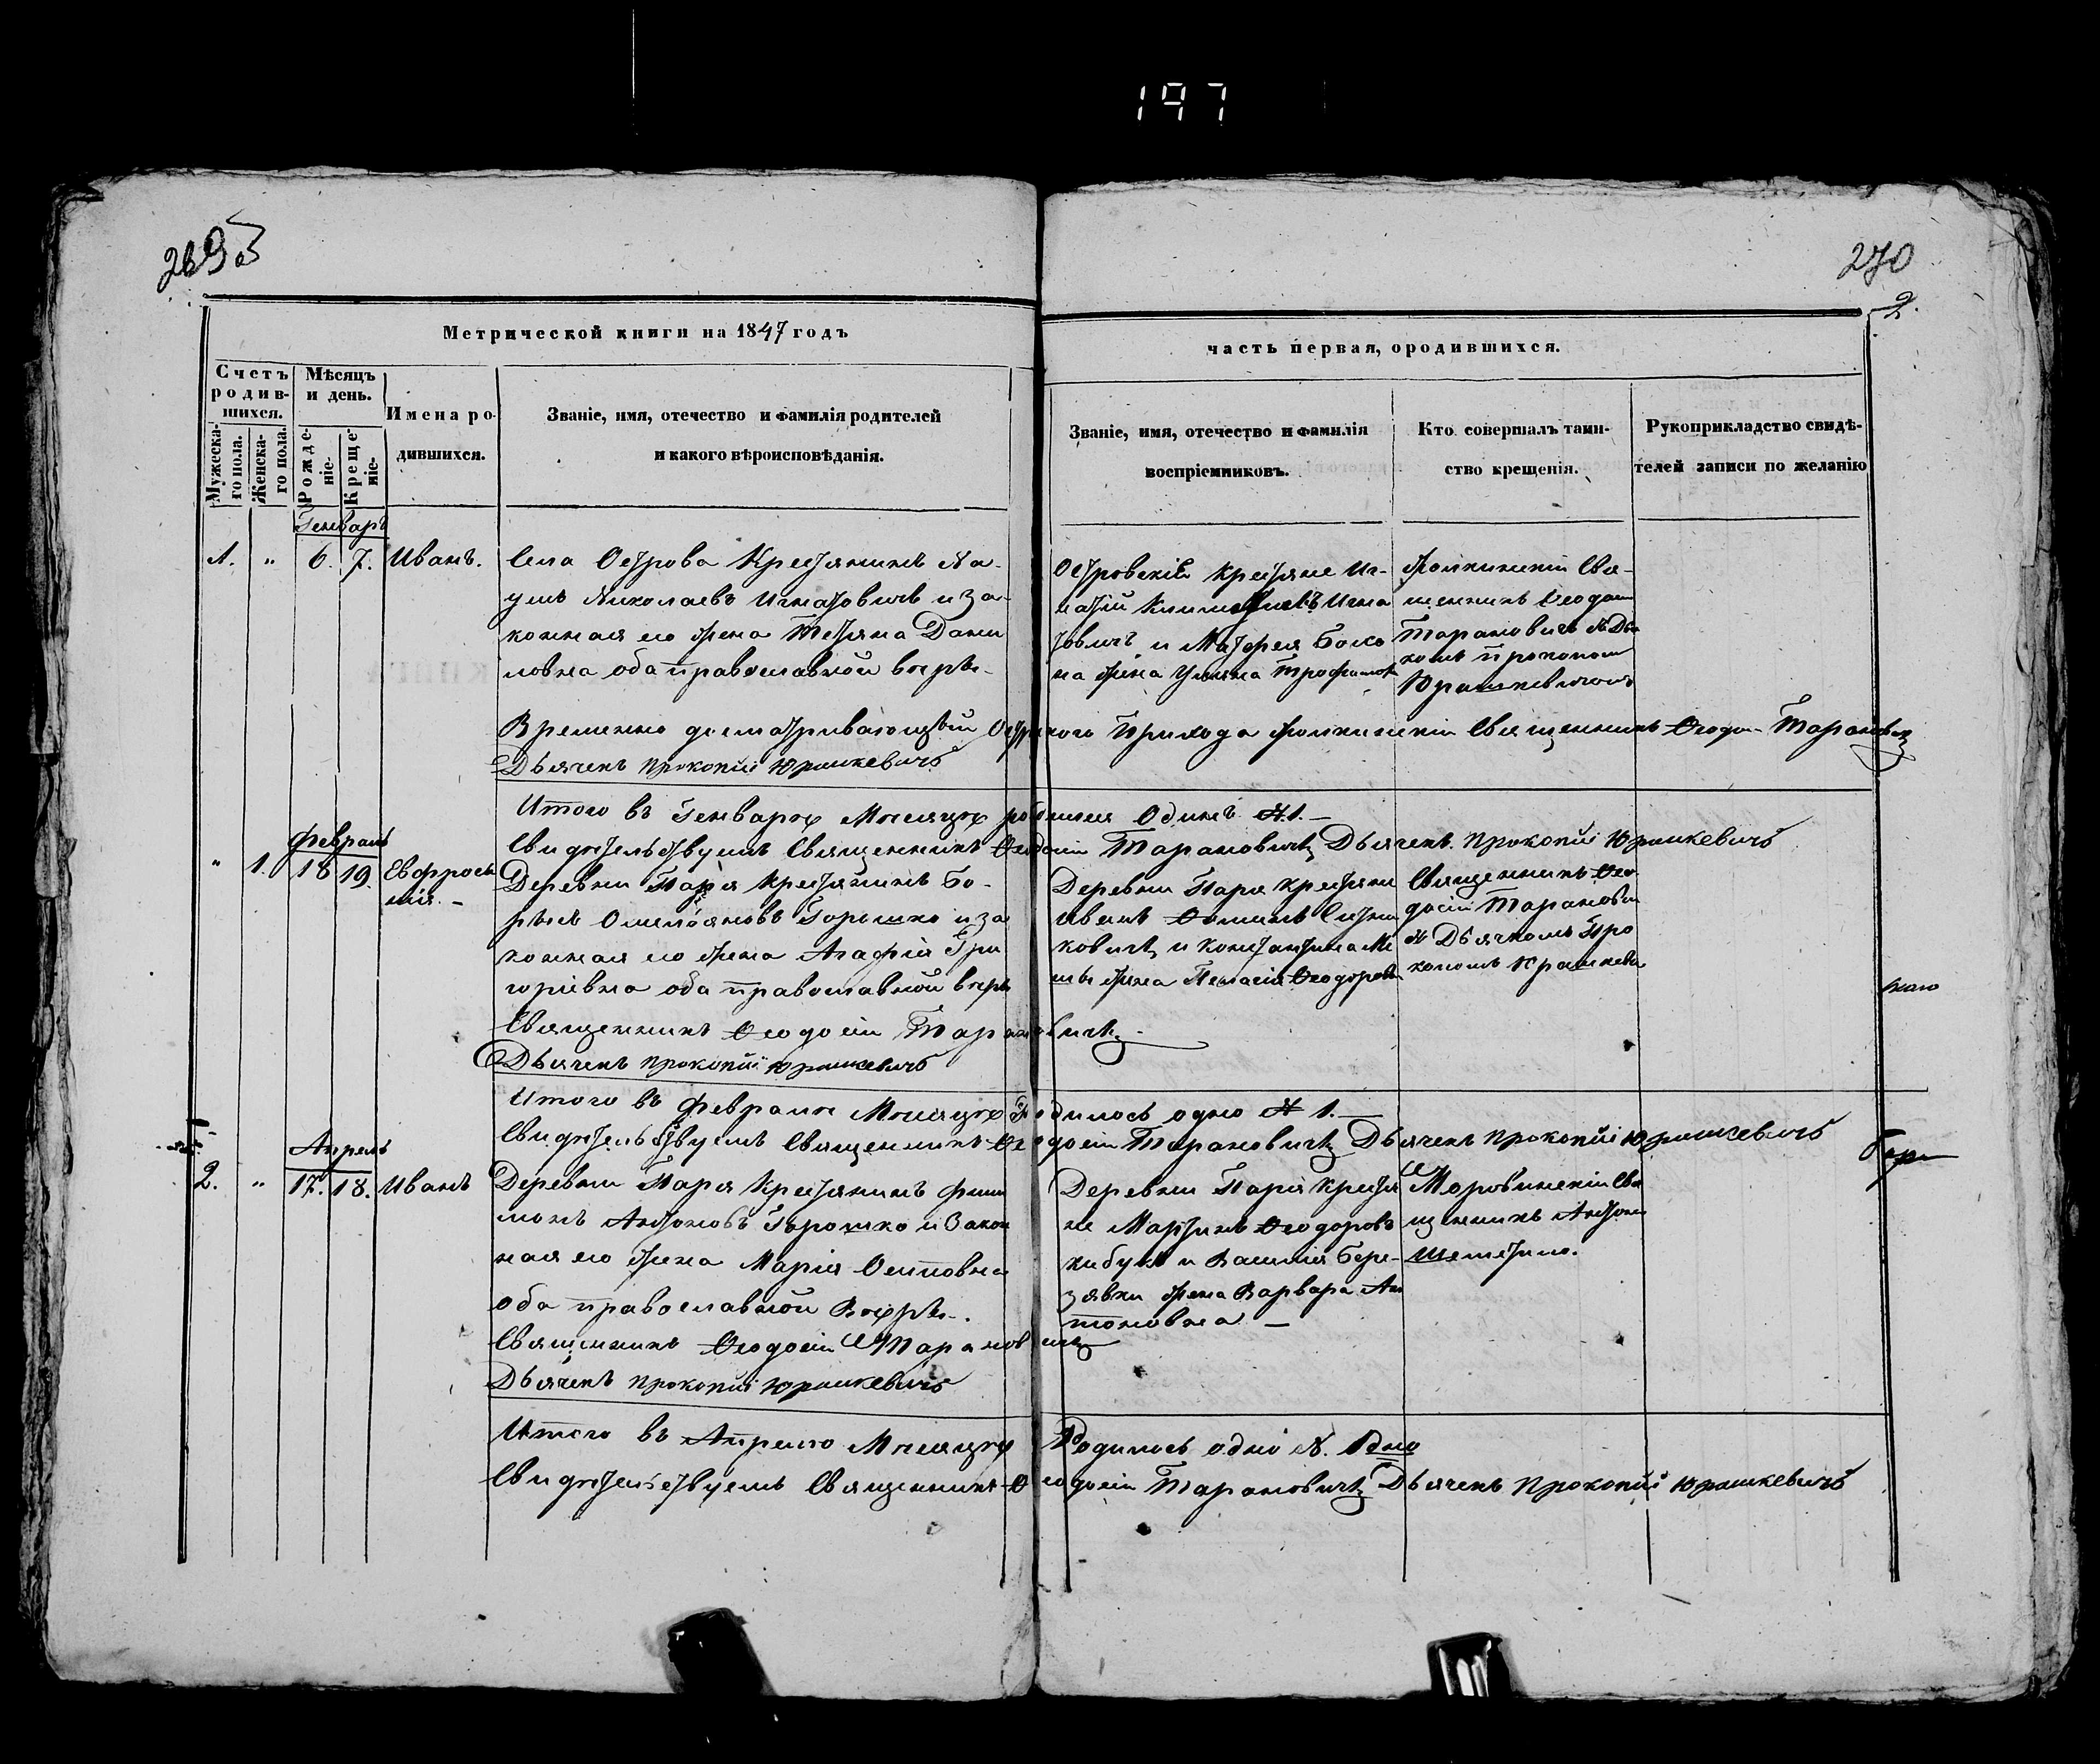 197
270
2.
Метрической книги на 1847 годъ
часть первая, ородившихся.
Счетъ родившихся.
Мѣсяцъ и день.
Мужеска-
го пола.
Женска-
го пола.
Рожде-
ніе.
Креще-
ніе.
Имена ро-
дившихся.
Званіе, имя, отечество и фамилія родителей
и какого вѣроисповѣданія.
Званіе, имя, отечество и фамилія
воспріемниковъ.
Кто совершалъ таин-
ство крещенія.
Рукоприкладство свидѣ-
телей записи по желанію
Генварь
1. " 6. 7. Иванъ.
Села Острова Крестьянинъ На-
умъ Николаевъ Игнатовичъ и за-
конная его жена Татьяна Дани
ловна оба православной вѣры.
Островскій крестьяне Иг-
натій Игна
товичъ и Матфея Боко
на жена Ульяна Трофимов
Свя-
щенникъ Ѳеодосій
Тарановичъ съ Дья
комъ Прокопом
Юрашкевичомъ
Временно досматривающій Островского Прихода Священникъ Ѳеодосій Тарановичъ
Дьячекъ Прокопій Юрашкевичъ
Итого въ Генварѣ Мѣсяцѣ родился Одинъ №1.
Свидѣтельствуемъ Священникъ Ѳеодосій Тарановичъ Дьячекъ Прокопій Юрашкевичъ
Февраль
" 1. 18 19. Евфроси
нія.
Деревни Паря Крестьянинъ Бо-
рысъ Горошко и за
конная его жена Агафія Гри
горіевна оба православной вѣры
Деревни Паря крестьяне
Иванъ
ковичъ и Константина
жена Пелагія Ѳеодоров
Священникъ Ѳео
досій Тарановичъ
съ Дьячкомъ Про
копомъ Юрашкеви
Священникъ Ѳеодосій Тарановичъ
Дьячекъ Прокопій Юрашкевичъ
Итого въ Февралѣ Мѣсяцѣ Родилось одно № 1.
Свидѣтельствуемъ Священникъ Ѳеодосій Тарановичъ Дьячекъ Прокопій Юрашкевичъ
Апрель
2. " 17. 18. Иванъ
Деревни Паря Крестьянинъ Фили
монъ Антоновъ Горошко и Закон
ная его жена Марія Осиповна
оба православной Вѣры.
Деревни Паря Крестья
не Мартинъ Ѳеодоровъ
и Василія Бере-
зявки жена Варвара Ан
тоновна
Священникъ Антоній
Шеметило.
Священникъ Ѳеодосій Тарановичъ
Дьячекъ Прокопій Юрашкевичъ
Итого въ Апрелѣ Мѣсяцѣ Родилось одно №. 1дно
Свидѣтельствуемъ Священникъ Ѳеодосій Тарановичъ Дьячекъ Прокопій Юрашкевичъ